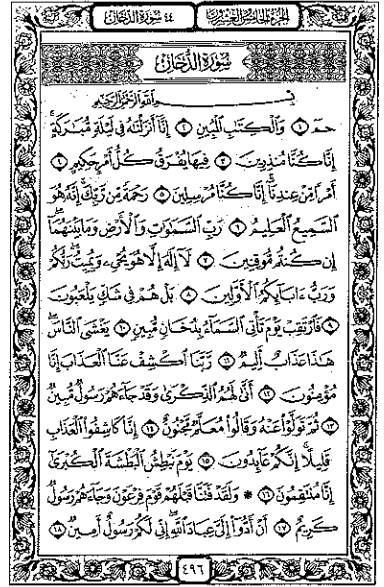 الجزء الخامس والعشرون
٤٤ سورة الدخان
سُورَةُ الدُّخَانِ
بِسْمِ ٱللَّهِ ٱلرَّحْمَٰنِ ٱلرَّحِيمِ
حمٓ ١ وَٱلْكِتَٰبِ ٱلْمُبِينِ ٢ إِنَّآ أَنزَلْنَٰهُ فِى لَيْلَةٍ مُّبَٰرَكَةٍ ۚ
إِنَّا كُنَّا مُنذِرِينَ ٣ فِيهَا يُفْرَقُ كُلُّ أَمْرٍ حَكِيمٍ ٤
أَمْرًا مِّنْ عِندِنَآ ۚ إِنَّا كُنَّا مُرْسِلِينَ ٥ رَحْمَةً مِّن رَّبِّكَ ۚ إِنَّهُۥ هُوَ
ٱلسَّمِيعُ ٱلْعَلِيمُ ٦ رَبِّ ٱلسَّمَٰوَٰتِ وَٱلْأَرْضِ وَمَا بَيْنَهُمَآ ۖ
إِن كُنتُم مُّوقِنِينَ ٧ لَآ إِلَٰهَ إِلَّا هُوَ يُحْىِۦ وَيُمِيتُ ۖ رَبُّكُمْ
وَرَبُّ ءَابَآئِكُمُ ٱلْأَوَّلِينَ ٨ بَلْ هُمْ فِى شَكٍّ يَلْعَبُونَ
٩ فَٱرْتَقِبْ يَوْمَ تَأْتِى ٱلسَّمَآءُ بِدُخَانٍ مُّبِينٍ ١٠ يَغْشَى ٱلنَّاسَ ۖ
هَٰذَا عَذَابٌ أَلِيمٌ ١١ رَّبَّنَا ٱكْشِفْ عَنَّا ٱلْعَذَابَ إِنَّا
مُؤْمِنُونَ ١٢ أَنَّىٰ لَهُمُ ٱلذِّكْرَىٰ وَقَدْ جَآءَهُمْ رَسُولٌ مُّبِينٌ
١٣ ثُمَّ تَوَلَّوْا۟ عَنْهُ وَقَالُوا۟ مُعَلَّمٌ مَّجْنُونٌ ١٤ إِنَّا كَاشِفُوا۟ ٱلْعَذَابِ
قَلِيلًا ۚ إِنَّكُمْ عَآئِدُونَ ١٥ يَوْمَ نَبْطِشُ ٱلْبَطْشَةَ ٱلْكُبْرَىٰٓ
إِنَّا مُنتَقِمُونَ ١٦ ۞ وَلَقَدْ فَتَنَّا قَبْلَهُمْ قَوْمَ فِرْعَوْنَ وَجَآءَهُمْ رَسُولٌ
كَرِيمٌ ١٧ أَنْ أَدُّوٓا۟ إِلَىَّ عِبَادَ ٱللَّهِ ۖ إِنِّى لَكُمْ رَسُولٌ أَمِينٌ ١٨
٤٩٦